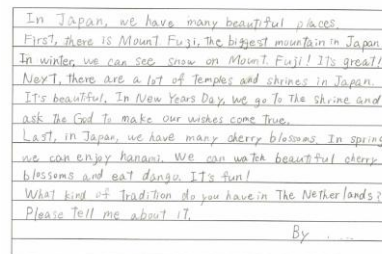 In Japan, we have many beautiful places.
First, there is Mount Fuji, the biggest mountain in Japan.
In winter, we can see snow on Mount Fuji! It's great!
Next, there are a lot of temples and shrines in Japan.
It's beautiful. In New Years Day, we go to the shrine and
ask the God to make our wishes come true.
Last, in Japan, we have many cherry blossoms. In spring
we can enjoy hanami. We can watch beautiful cherry
blossoms and eat dango. It's fun!
What kind of tradition do you have in The Netherlands?
Please tell me about it.
By .....